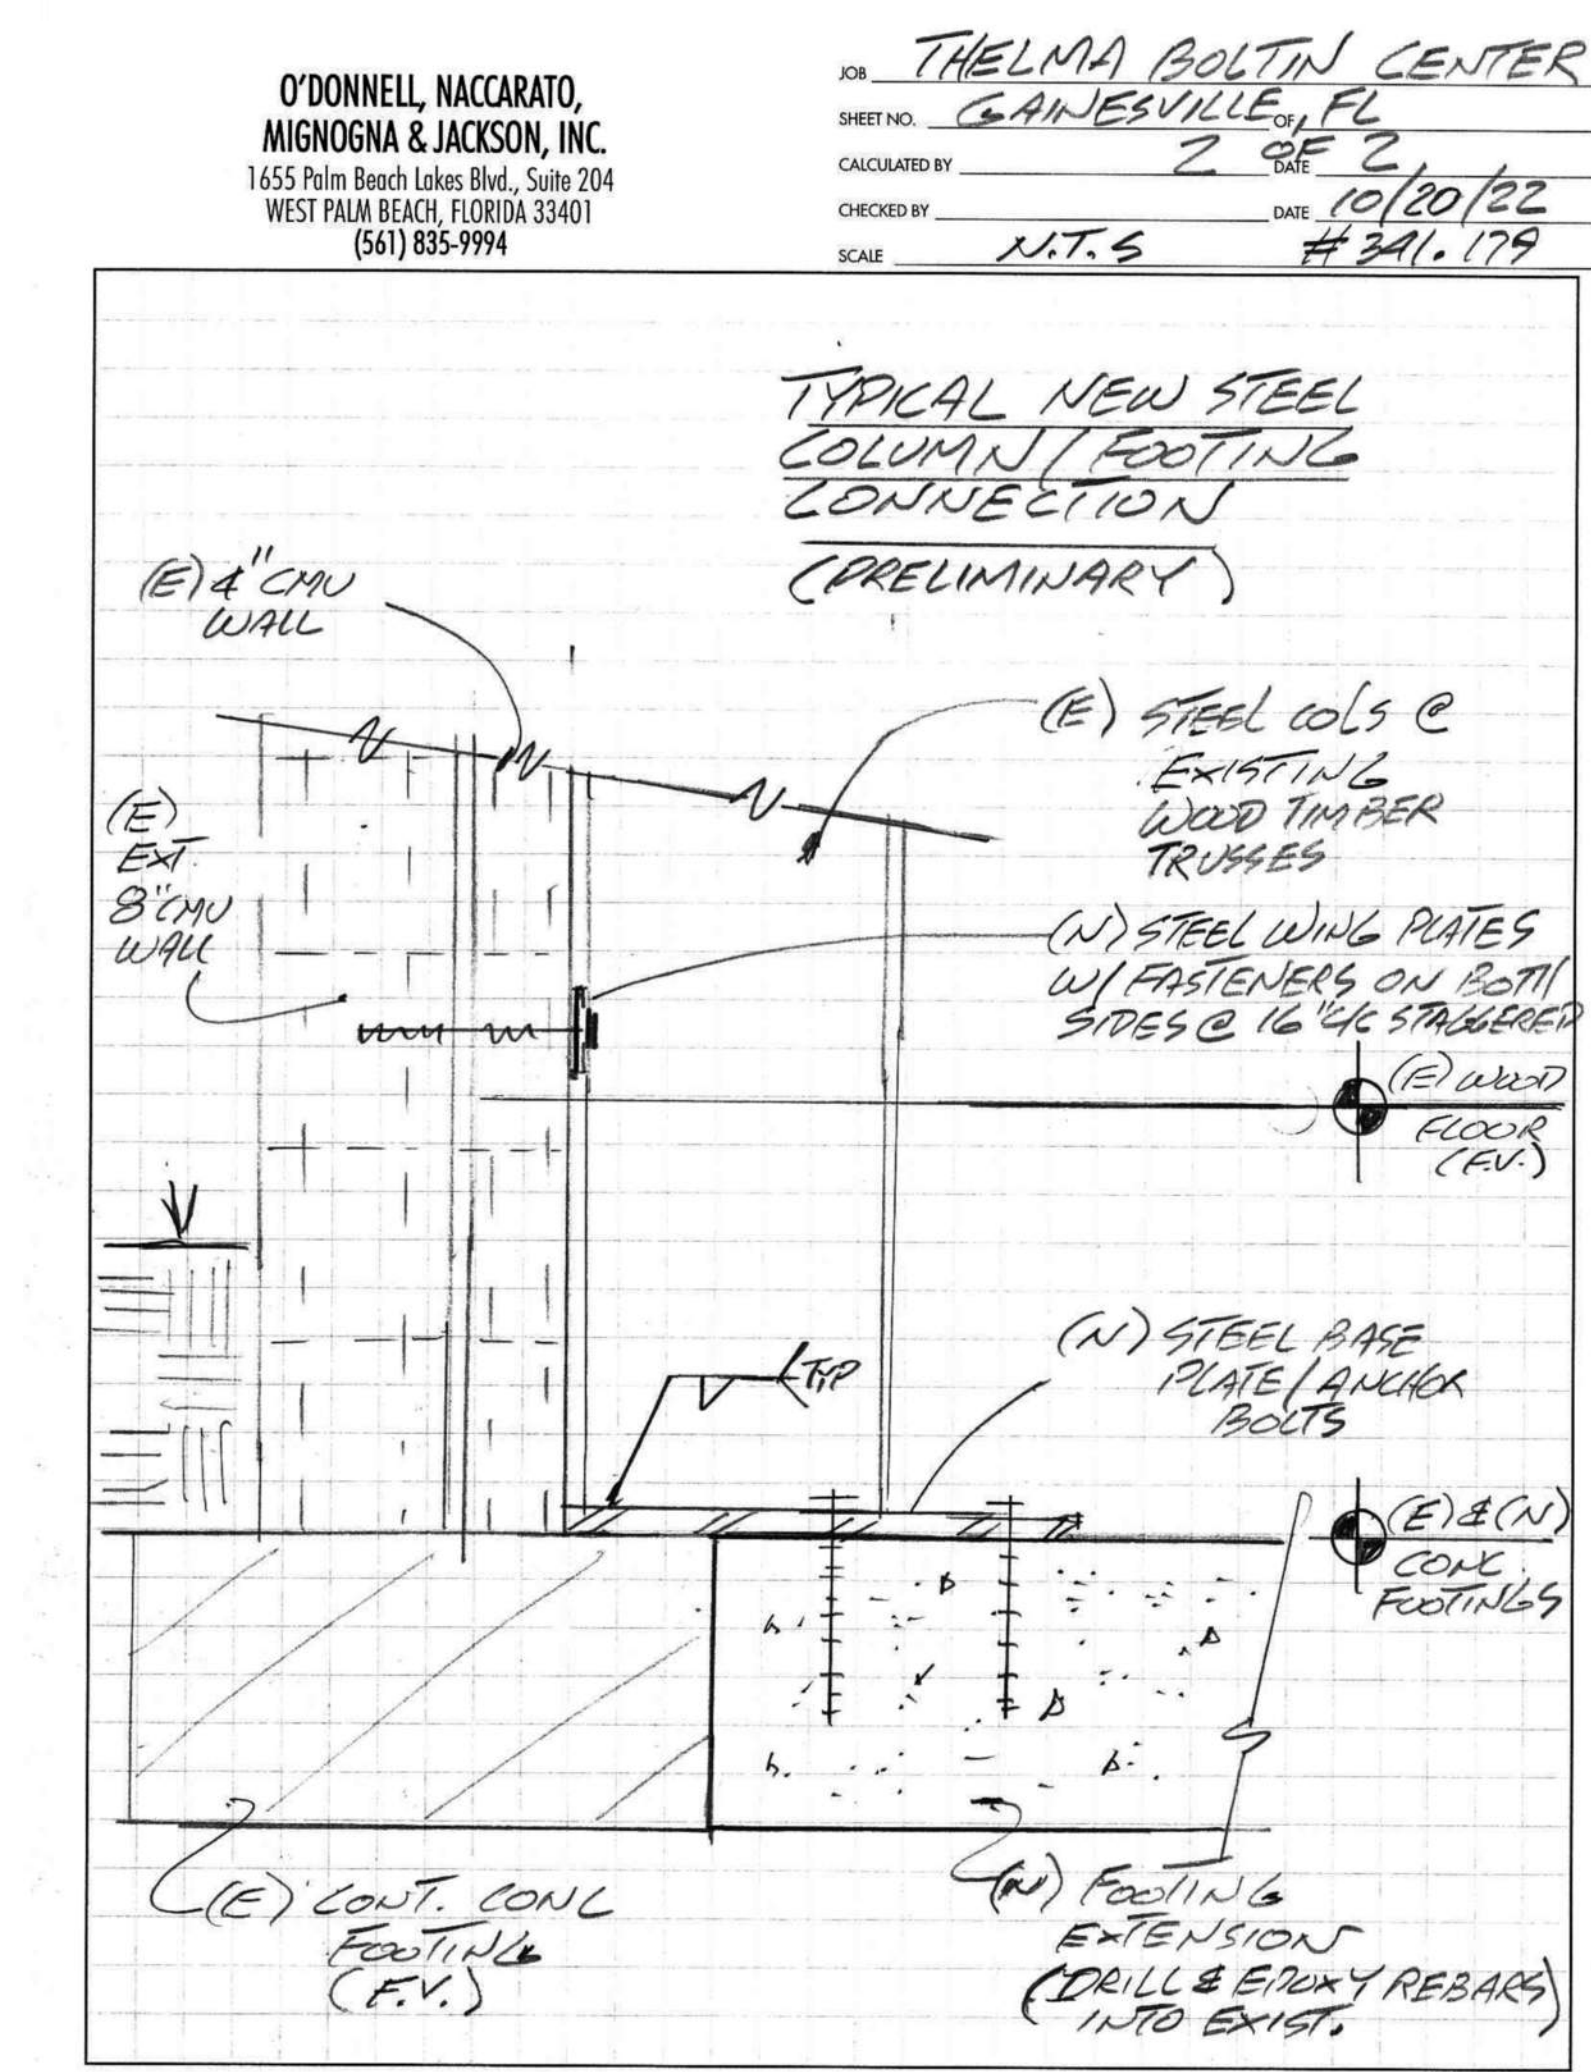 O'DONNELL, NACCARATO,
MIGNOGNA & JACKSON, INC.
1655 Palm Beach Lakes Blvd., Suite 204
WEST PALM BEACH, FLORIDA 33401
(561) 835-9994
JOB THELMA BOLTIN CENTER
SHEET NO. GAINESVILLE, FL OF
CALCULATED BY 2 OF 2 DATE
CHECKED BY DATE 10/20/22
SCALE N.T.S #341.179
TYPICAL NEW STEEL
COLUMN / FOOTING
CONNECTION
(PRELIMINARY)
(E) 4" CMU
WALL
(E) STEEL COLS @
EXISTING
WOOD TIMBER
TRUSSES
(E)
EXT.
8" CMU
WALL
(N) STEEL WING PLATES
W/ FASTENERS ON BOTH
SIDES @ 16" C/C STAGGERED
(E) WOOD
FLOOR
(F.V.)
TYP
(N) STEEL BASE
PLATE / ANCHOR
BOLTS
(E) & (N)
CONC.
FOOTINGS
(E) CONT. CONC
FOOTING
(F.V.)
(N) FOOTING
EXTENSION
(DRILL & EPOXY REBARS)
INTO EXIST.